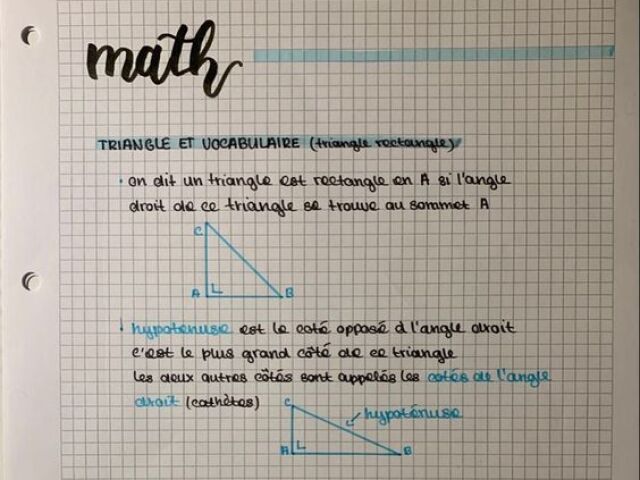 math
TRIANGLE ET VOCABULAIRE (triangle rectangle)
• on dit un triangle est rectangle en A si l'angle
droit de ce triangle se trouve au sommet A
C
A B
• hypoténuse est le coté opposé à l'angle droit
c'est le plus grand côté de ce triangle
les deux autres côtés sont appelés les cotés de l'angle
droit (cathètes)
C hypoténuse
A B